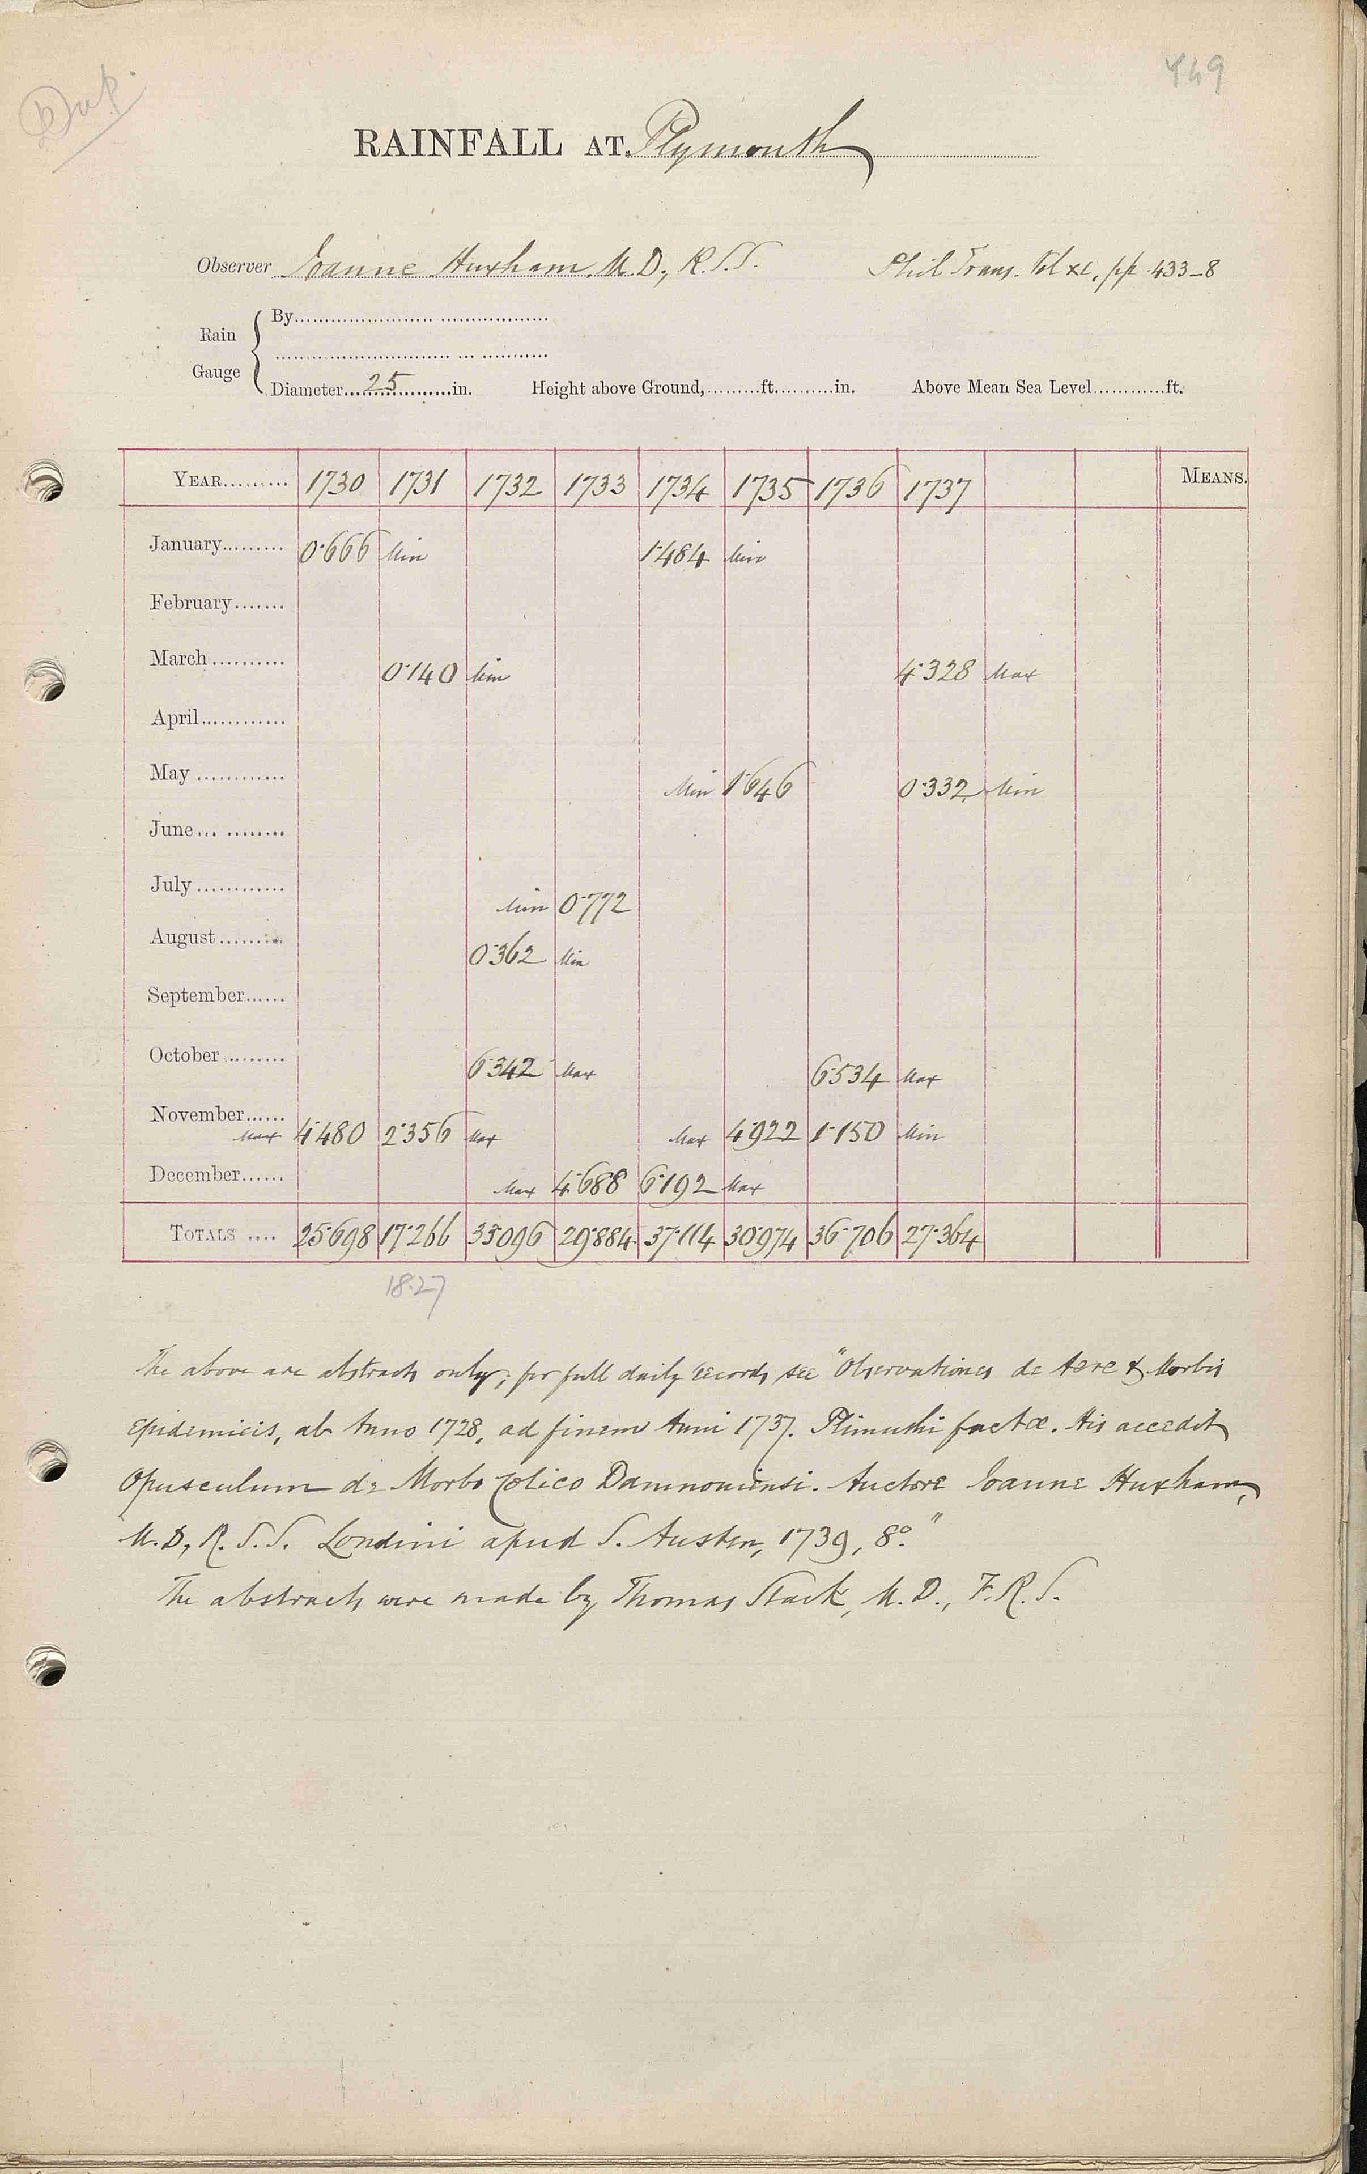 Dup.
449
RAINFALL AT Plymouth
Observer Ioanne Huxham, M.D., R.S.S. Phil Trans. Vol xl, pp 433-8
Rain Gauge
By
Diameter 25 in. Height above Ground, ft. in. Above Mean Sea Level ft.
YEAR 1730 1731 1732 1733 1734 1735 1736 1737 MEANS.
January 0·666 Min 1·484 Min
February
March 0·140 Min 4·328 Max
April
May Min 1·646 0·332 Min
June
July Min 0·772
August 0·362 Min
September
October 6·342 Max 6·534 Max
November Max 4·480 2·356 Max Max 4·922 1·150 Min
December Max 4·688 6·192 Max
TOTALS 25·698 17·266 35·096 29·884 37·114 30·974 36·706 27·364
18·27
The above are abstracts only; for full daily records see "Observationes de Aere & Morbis
Epidemicis, ab Anno 1728, ad finem Anni 1737. Plimuthi factæ. His accedit
Opusculum de Morbo Colico Damnoniensi. Auctore Ioanne Huxham,
M.D., R.S.S. Londini apud S. Austen, 1739, 8º."
The abstracts were made by Thomas Stack, M.D., F.R.S.